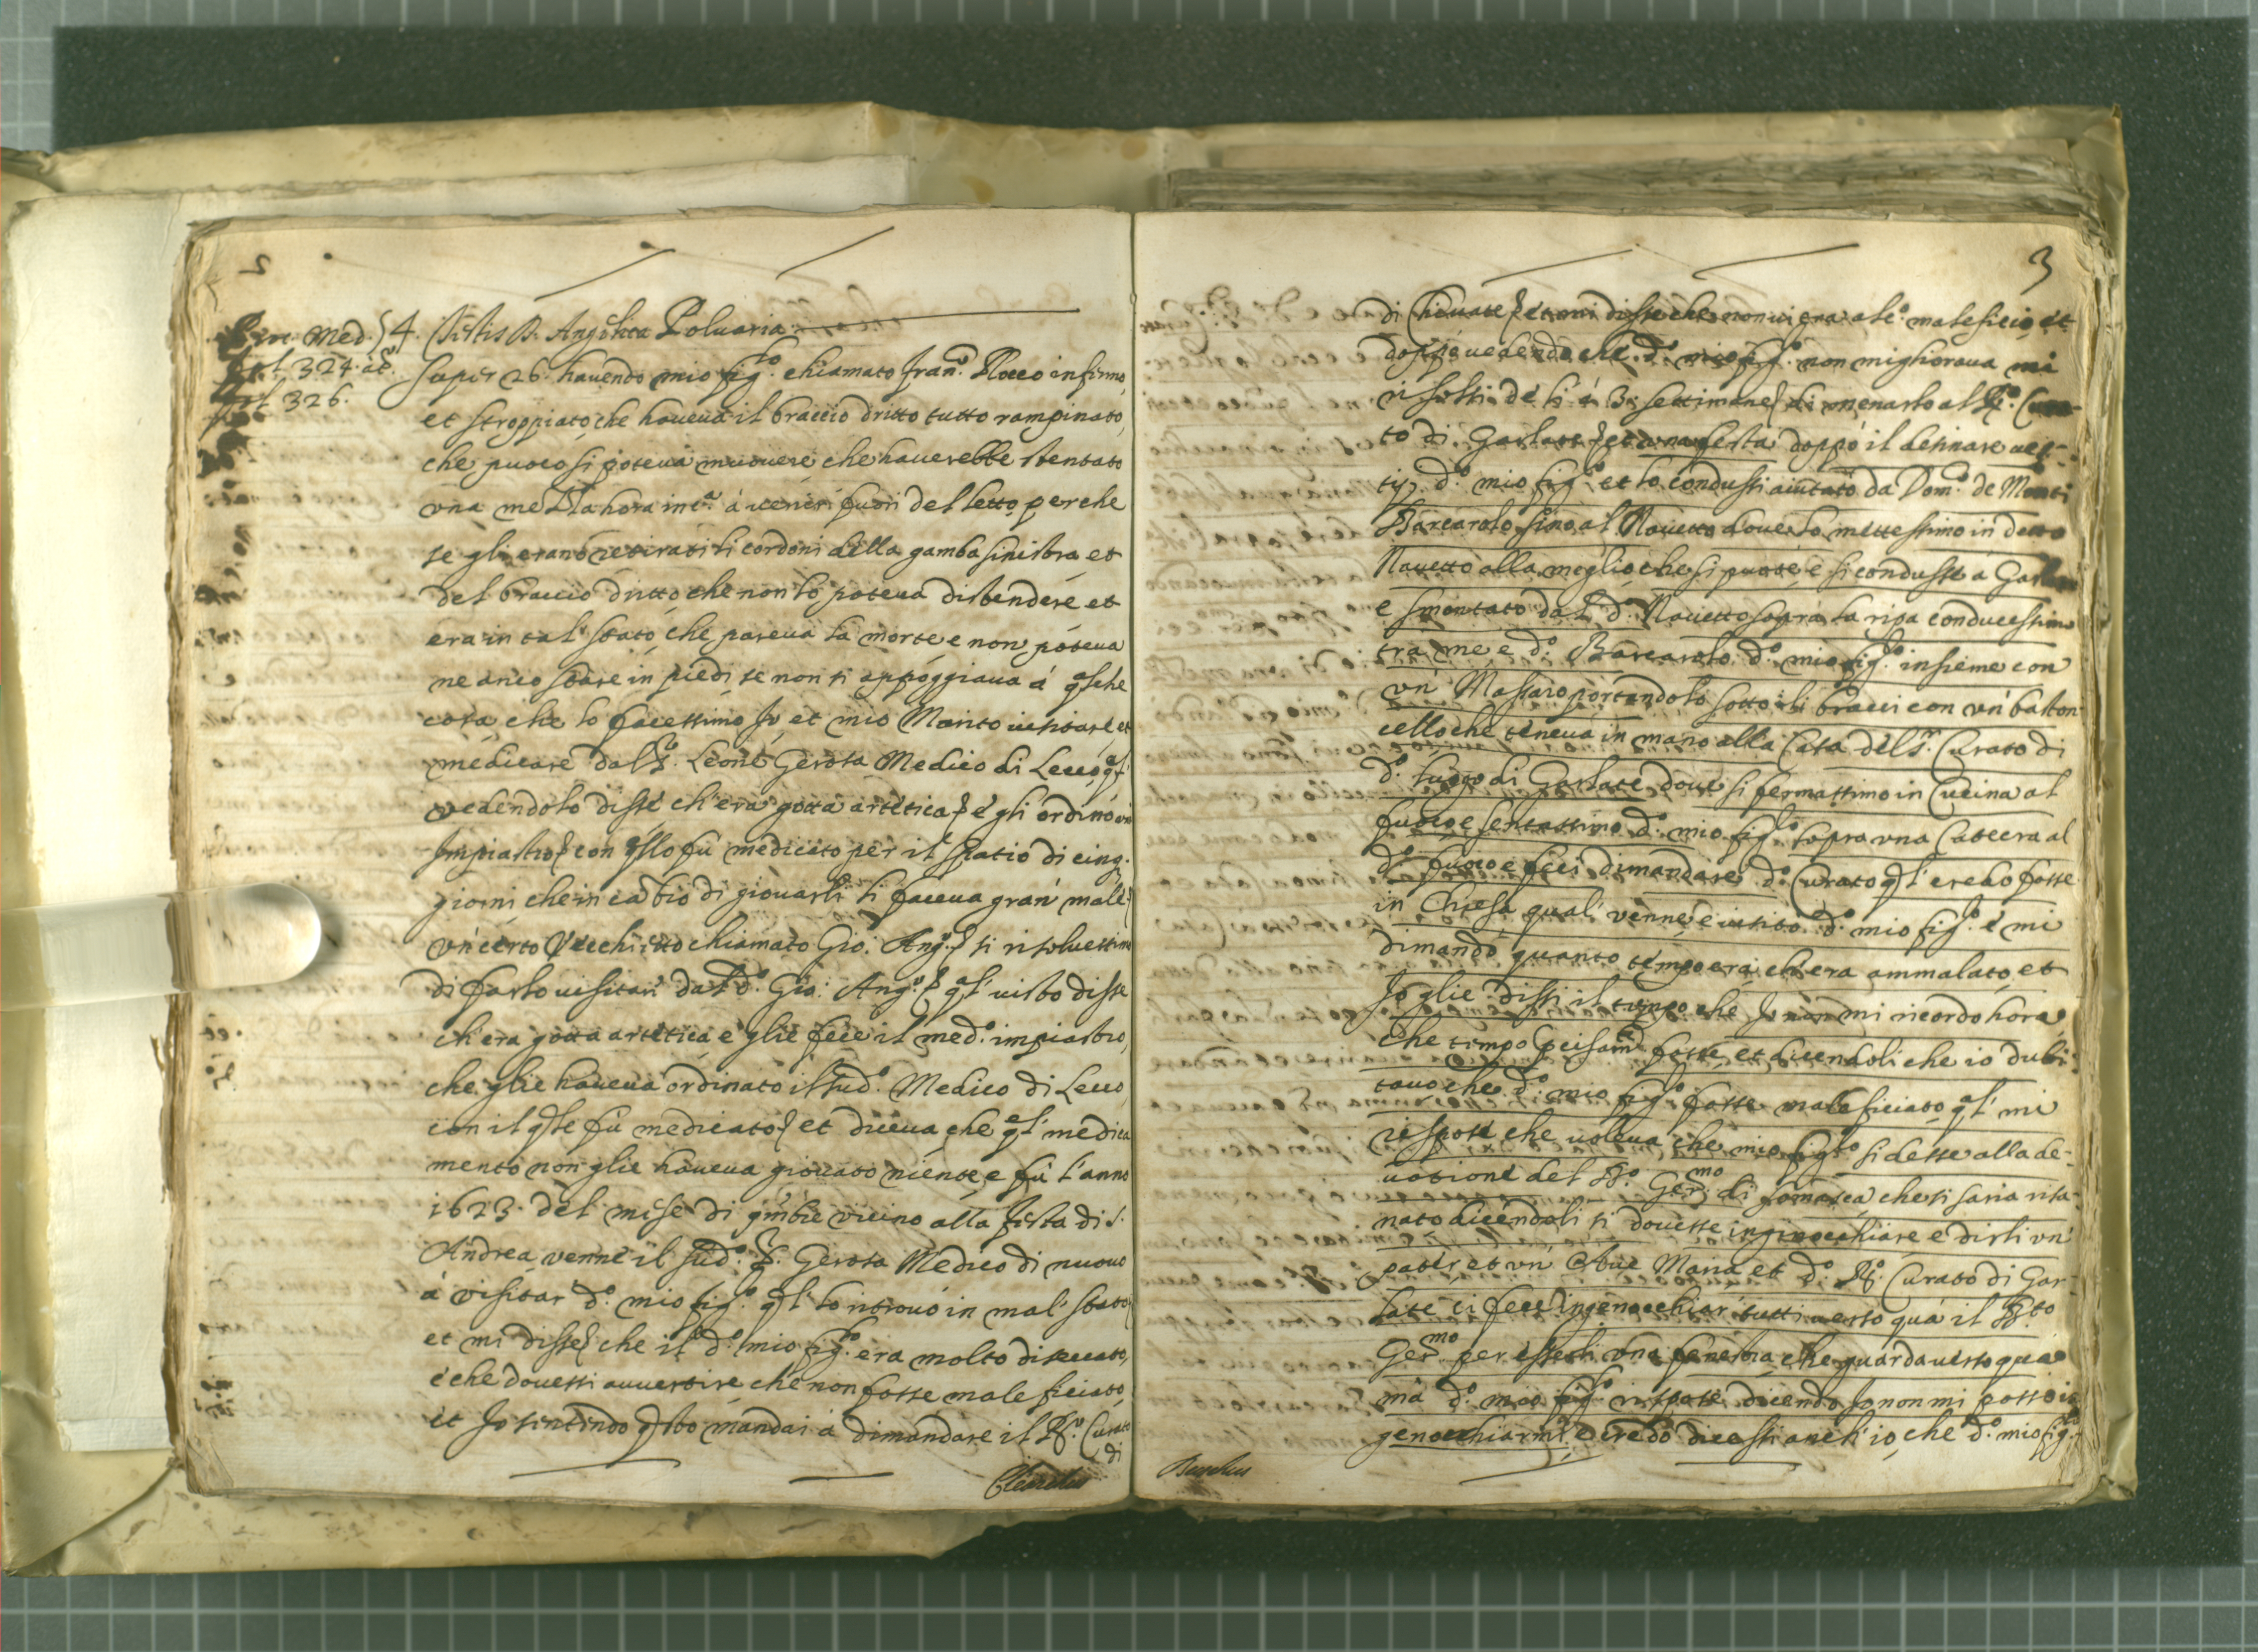 2
Proc. Med. 4. Testis D. Angelica Poluaria
fol. 324. à t.
fol. 326.
super 26. hauendo mio fig.lo chiamato Fran.o Rocco infirmo,
et stroppiato, che haueua il braccio dritto tutto rampinato,
che puoco si poteua muouere che hauerebbe stentato
vna mezza hora in c.a à uenir fuori del letto, perche
se gli erano retirati li cordoni della gamba sinistra, et
del braccio dritto che non lo poteua distendere et
era in tal stato, che pareua la morte e non poteua
ne anco stare in piedi se non si appoggiaua à q.lche
cosa, che lo facessimo Io et mio Marito uisitare et
medicare dal S.r Leone Gerosa Medico di Lecco, q.l
vedendolo disse ch'era gotta artetica e gli ordinò un
Impiastro con q.llo fu medicato per il spatio di cinq.
giorni che in cābio di giouarli li faceua gran male
vn certo Vecchietto chiamato Gio: Ang.o si risoluessimo
di farlo uisitar dal d.o Gio: Ang.o q.l uisto disse
ch'era gotta artetica e glie fece il med.o impiastro,
che glie haueua ordinato il sud.o Medico di Lecco,
con il q.le fù medicato et diceua che q.l medica
mento non glie haueua giouato niente, e fù l'anno
1623. del mese di 9mbre vicino alla festa di S.
Andrea, venne il sud.o S. Gerosa Medico di nuouo
à visitar d.o mio fig.o q.l lo ritrouò in mal stato
et mi disse che il d.o mio fig.o era molto diseccato,
e che douessi auuertire che non fosse maleficiato
et Io sentendo q.sto mandai à dimandare il R.o Curato
di
3
di Chiuate et mi disse che non ui era alc.o maleficio et
doppò uedendo che d.o mio fig.o non miglioraua mi
risolsi de lì à 3. settimane di menarlo al R.o Cura-
to di Garlate et una festa doppò il desinare ues-
tij d.o mio fig.o et lo condussi aiutato da Dom.o de Monti
Barcarolo sino al Nauetto doue lo mettessimo in detto
Nauetto alla meglio che si puote e si condusse à Garlate
e smontato dal d.o Nauetto sopra la ripa conducessimo
tra me e d.o Barcarolo d.o mio fig.lo insieme con
vn Massaro portandolo sotto alli bracci con vn baston
cello che teneua in mano alla Casa del S.r Curato di
d.o luogo di Garlate doue si fermassimo in Cucina al
fuoco e sentassimo d.o mio fig.o sopra vna Catecra al
d.o fuoco e feci dimandare d.o Curato q.l credo fosse
in Chiesa qual venne e uisitò d.o mio fig.o e mi
dimandò quanto tempo era ch'era ammalato, et
Io glie dissi il tempo che Io non mi ricordo hora
che tempo precisam.te fosse, et dicendoli che io dubi-
tauo che d.o mio fig.o fosse maleficiato q.l mi
rispose che voleua che mio fig.lo si desse alla de-
uotione del B.o Ger.mo di somasca che si saria risa-
nato dicendoli si douesse inginocchiare e dirli vn
pater et vn Aue Maria et d.o R. Curato di Gar-
late ci fece ingenocchiar tutti uerso quà il B.to
Ger.mo per esserli vna fenestra che guarda uerso quà
mà d.o mio fig.o rispose dicendo Io non mi posso in
genocchiarmi, e credo dicessi anch'io, che d.o mio fig.lo